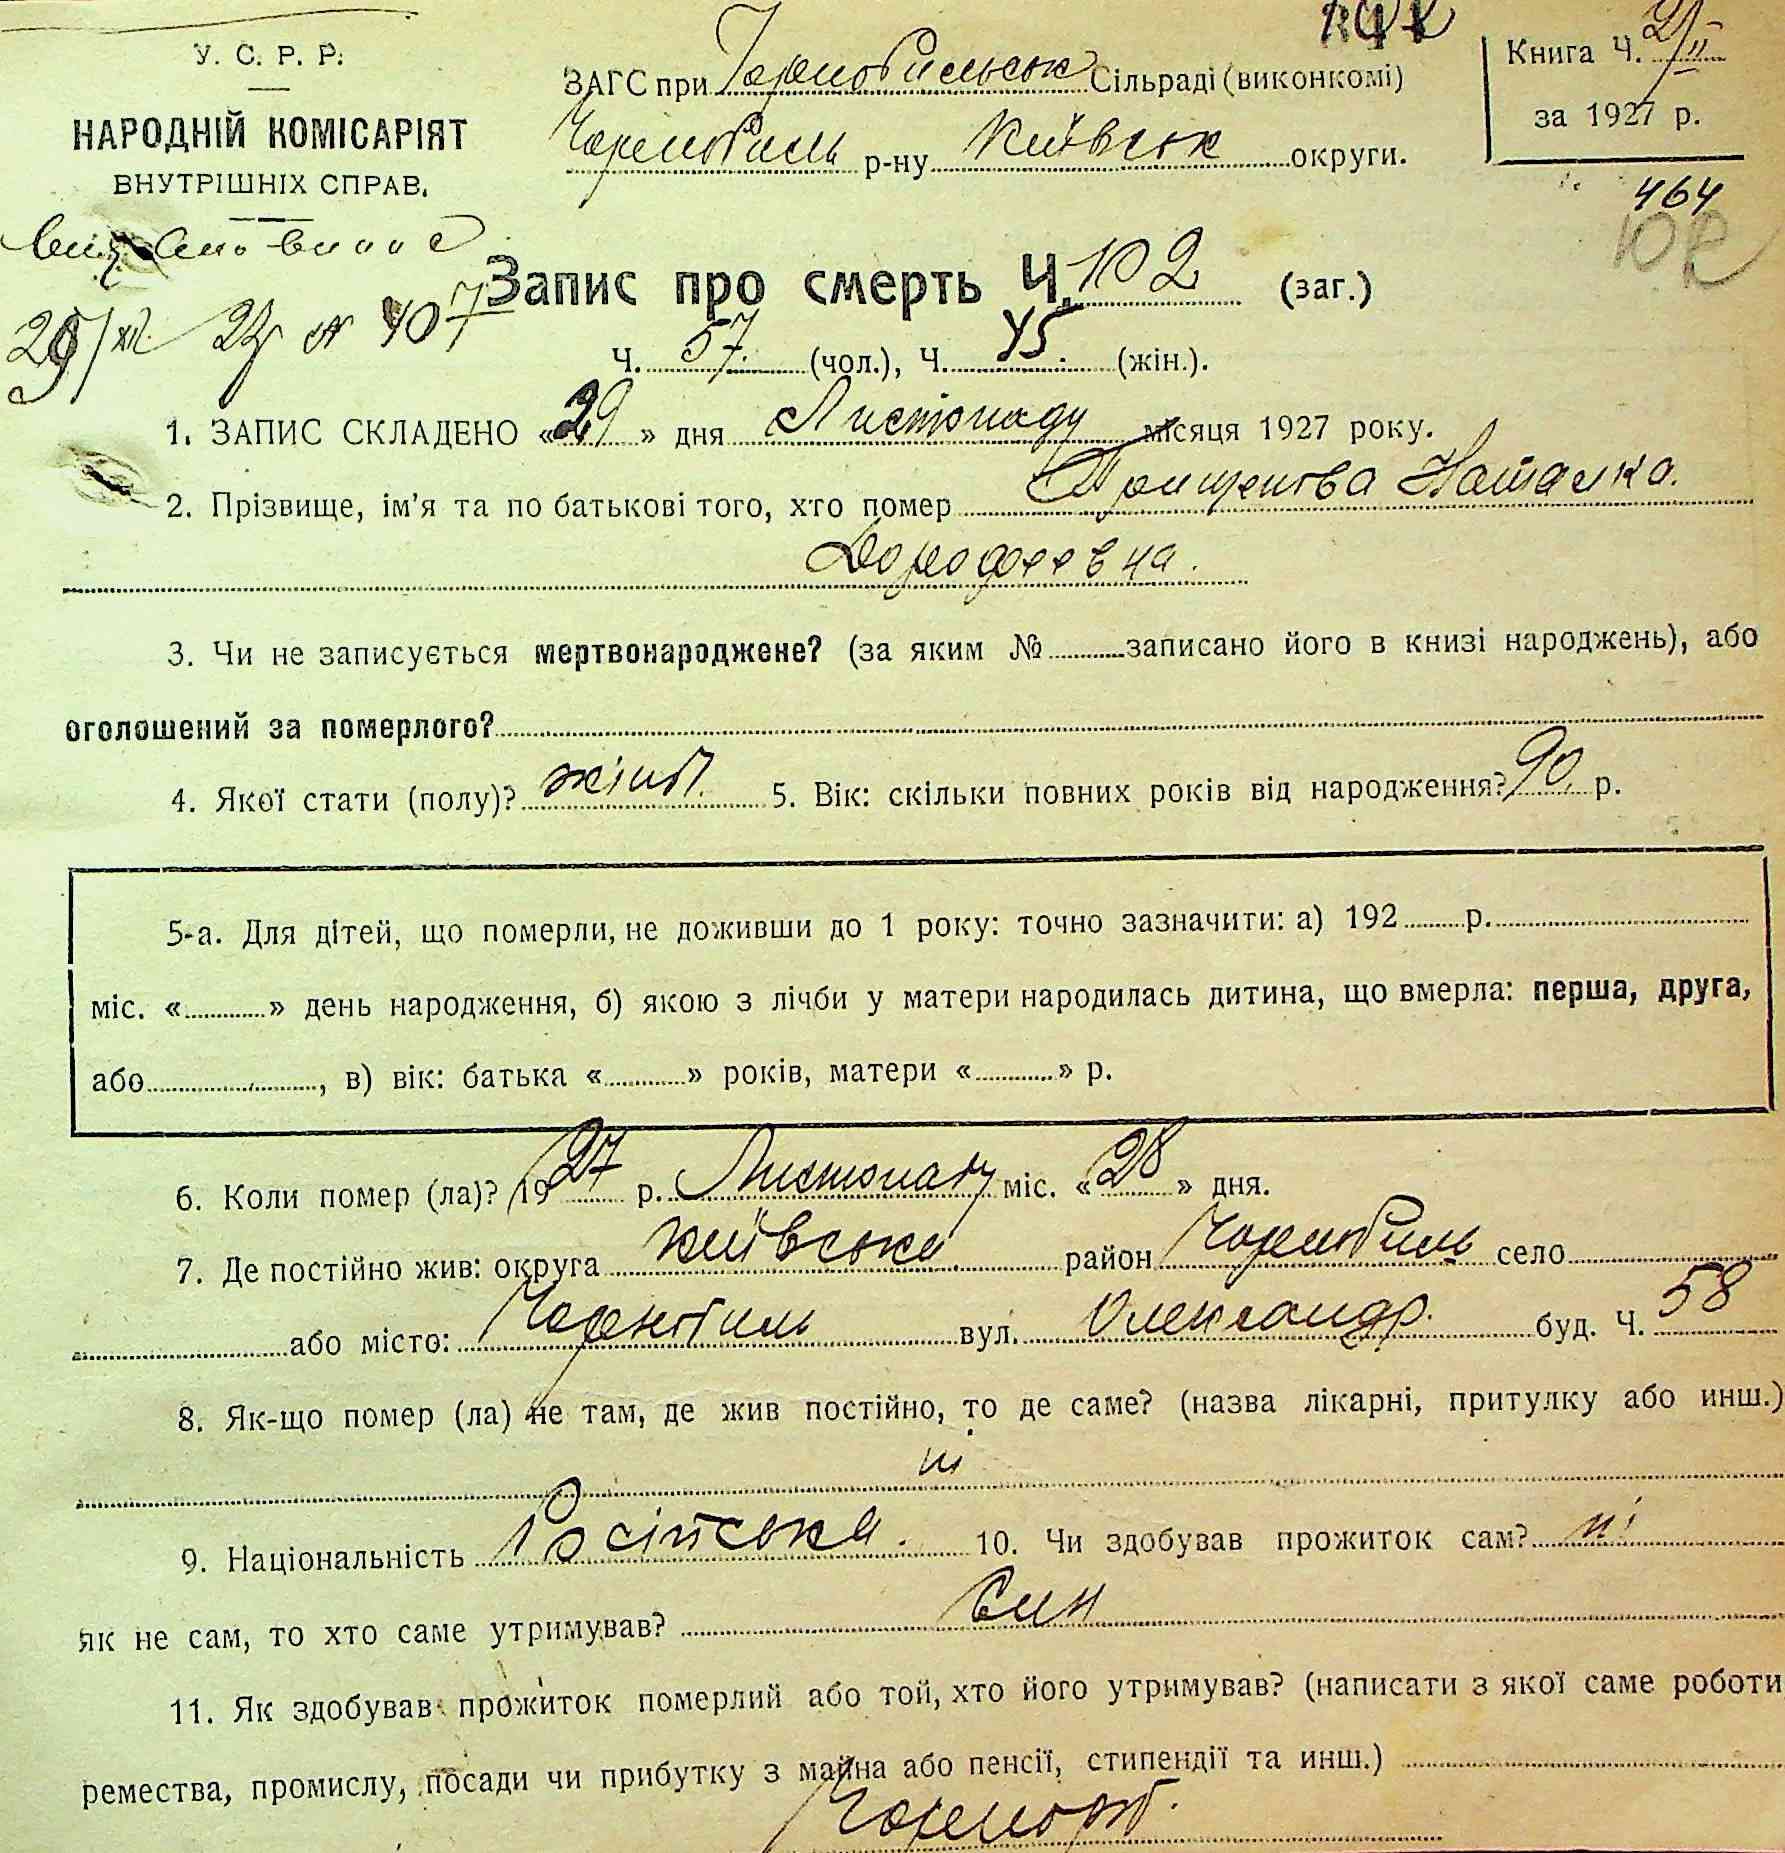 У. С. Р. Р.
НАРОДНІЙ КОМІСАРІЯТ
ВНУТРІШНІХ СПРАВ.
ЗАГС при Чернобильськ Сільраді (виконкомі)
Чернобиль р-ну Київськ округи.
Книга Ч. 2/II
за 1927 р.
464
102
29/XII 27 N 407
Запис про смерть Ч. 102 (заг.)
Ч. 57. (чол.), Ч. 45. (жін.).
1. ЗАПИС СКЛАДЕНО «29» дня Листопаду місяця 1927 року.
2. Прізвище, ім'я та по батькові того, хто помер Наталка.
Дорофеевна.
3. Чи не записується мертвонароджене? (за яким № записано його в книзі народжень), або
оголошений за померлого?
4. Якої стати (полу)? жіноч. 5. Вік: скільки повних років від народження? 90 р.
5-а. Для дітей, що померли, не доживши до 1 року: точно зазначити: а) 192 р.
міс. « » день народження, б) якою з лічби у матери народилась дитина, що вмерла: перша, друга,
або , в) вік: батька « » років, матери « » р.
6. Коли помер (ла)? 1927 р. Листопаду міс. «28» дня.
7. Де постійно жив: округа Київська район Чернобиль село
або місто: Чернобиль вул. Олександр. буд. Ч. 58
8. Як-що помер (ла) не там, де жив постійно, то де саме? (назва лікарні, притулку або инш.)
ні
9. Національність Російська. 10. Чи здобував прожиток сам? ні
Як не сам, то хто саме утримував? Син
11. Як здобував прожиток померлий або той, хто його утримував? (написати з якої саме роботи
ремества, промислу, посади чи прибутку з майна або пенсії, стипендії та инш.)
Чорнороб.